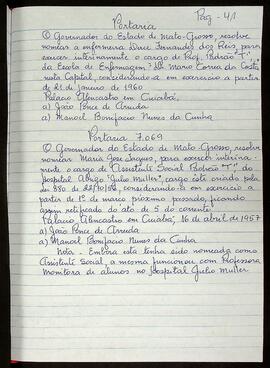 Pag - 41
Portaria
O Governador do Estado de Mato-Grosso, resolve
nomear a enfermeira Dair Fernandes dos Reis, para
exercer interinamente o cargo de Prof. Padrão "T",
da Escola de Enfermagem "Dr. Mario Correa da Costa"
nesta Capital, considerando-a em exercicio a partir
de 21 de Janeiro de 1960
Palacio Alencastro em Cuiabá,
a) João Ponce de Arruda
a) Manoel Bonifacio Nunes da Cunha
Portaria 7.069
O Governador do Estado de Mato-Grosso, resolve
nomear Maria José Jaques, para exercer interina-
mente o cargo de Assistente Social Padrão "T", do
Hospital Abrigo "Julio Muller", cargo este criado pela
Lei 880 de 22/10/56, considerando-a em exercicio a
partir de 1º de março próximo passado, ficando
assim retificado do ato de 5 do corrente.
Palacio Alencastro em Cuiabá, 16 de abril de 1957
a) João Ponce de Arruda
a) Manoel Bonifacio Nunes da Cunha
Nota - Embora esta tenha sido nomeada como
Assistente Social, a mesma funcionou com Professora
Monitora de alunos no Hospital Julio Muller.